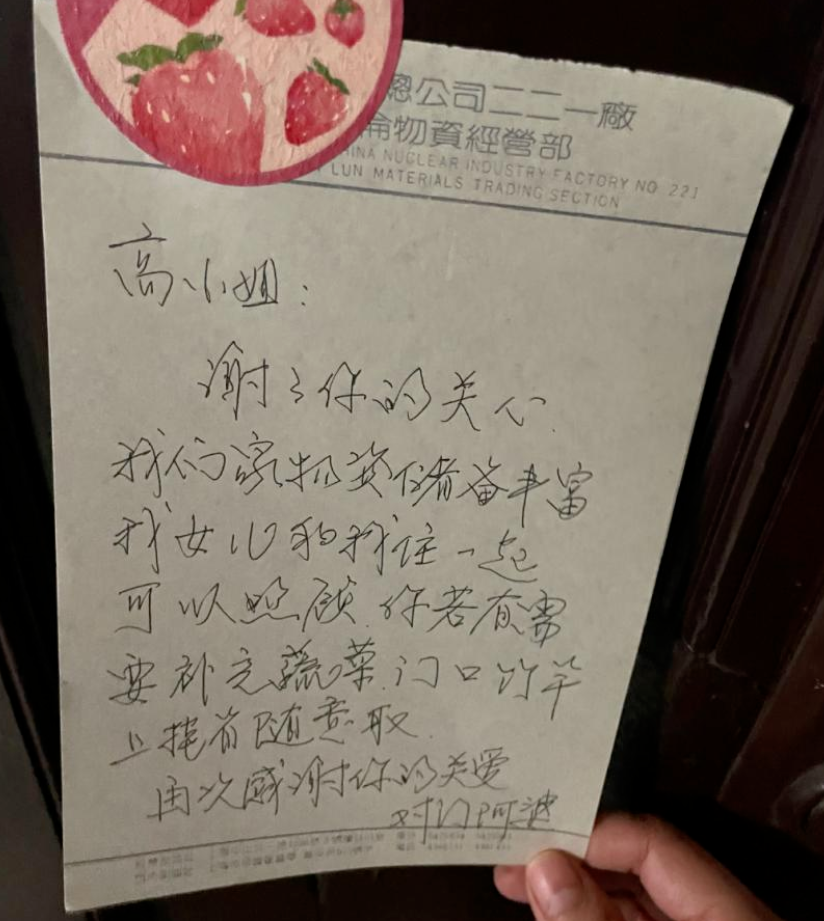 總公司二二一廠
物資經營部
CHINA NUCLEAR INDUSTRY FACTORY NO 221
LUN MATERIALS TRADING SECTION
高小姐:
谢谢你的关心
我们家物资储备丰富
我女儿和我住一起
可以照顾.你若有需
要补充蔬菜.门口竹竿
上挂着随意取.
再次感谢你的关爱
对门阿婆